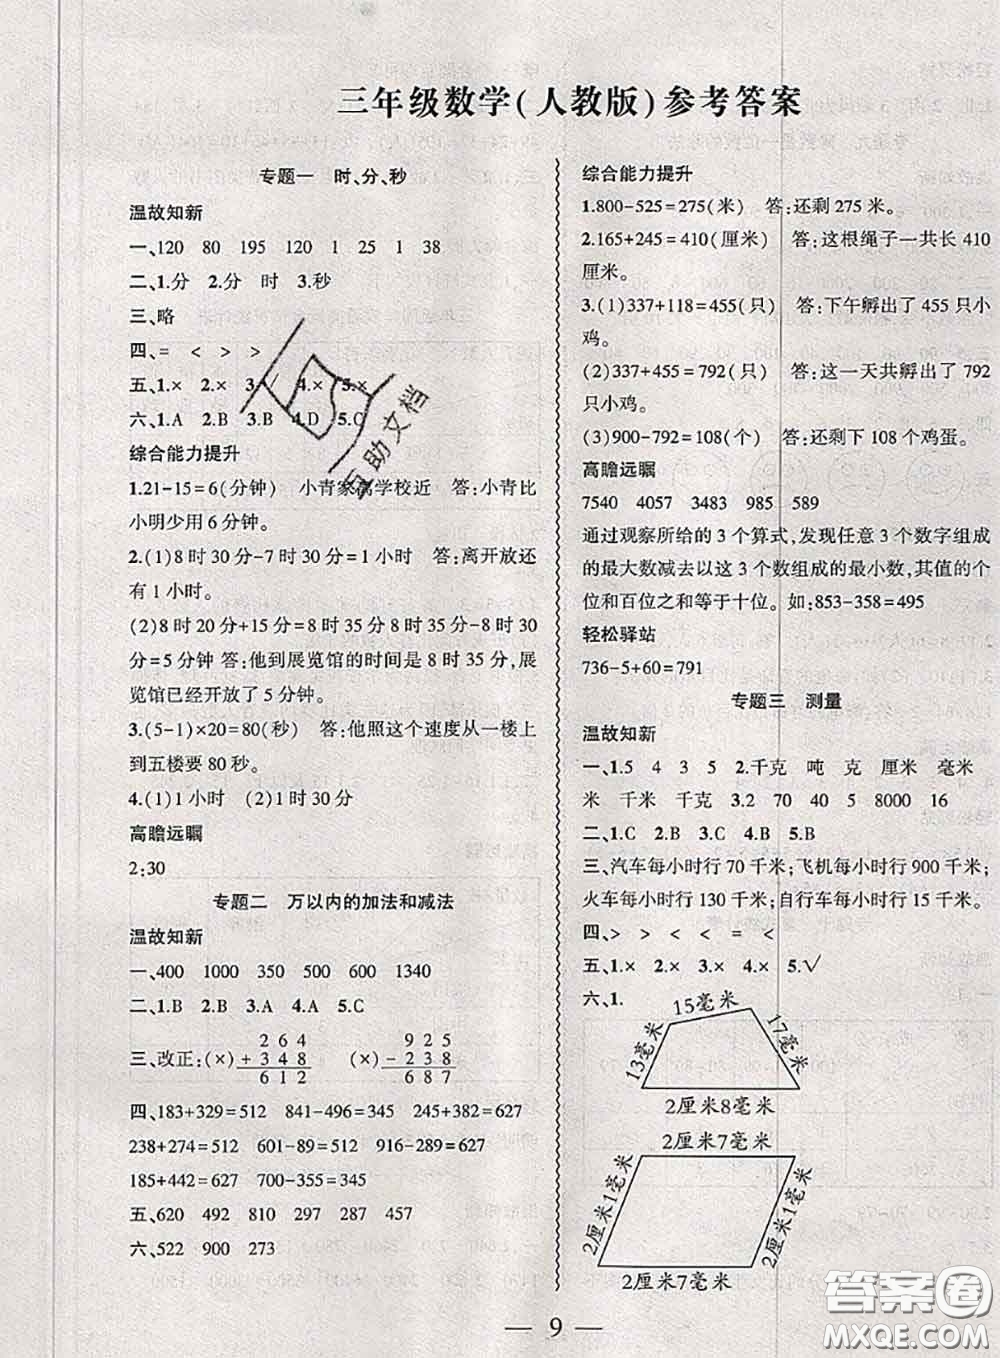 三年级数学(人教版)参考答案
专题一 时、分、秒
温故知新
一、120 80 195 120 1 25 1 38
二、1.分 2.分 时 3.秒
三、略
四、= < > >
五、1.× 2.× 3. 4.× 5.×
六、1.A 2.B 3.B 4.D 5.C
综合能力提升
1.21-15=6(分钟) 小青家离学校近 答:小青比
小明少用6分钟。
2.(1)8时30分-7时30分=1小时 答:离开放还
有1小时。
(2)8时20分+15分=8时35分 8时35分-8时30
分=5分钟 答:他到展览馆的时间是8时35分,展
览馆已经开放了5分钟。
3.(5-1)×20=80(秒) 答:他照这个速度从一楼上
到五楼要80秒。
4.(1)1小时 (2)1时30分
高瞻远瞩
2:30
专题二 万以内的加法和减法
温故知新
一、400 1000 350 500 600 1340
二、1.B 2.B 3.A 4.A 5.C
三、改正:(×) 264 + 348 612 (×) 925 - 238 687
四、183+329=512 841-496=345 245+382=627
238+274=512 601-89=512 916-289=627
185+442=627 700-355=345
五、620 492 810 297 287 457
六、522 900 273
综合能力提升
1.800-525=275(米) 答:还剩275米。
2.165+245=410(厘米) 答:这根绳子一共长410
厘米。
3.(1)337+118=455(只) 答:下午孵出了455只小
鸡。
(2)337+455=792(只) 答:这一天共孵出了792
只小鸡。
(3)900-792=108(个) 答:还剩下108个鸡蛋。
高瞻远瞩
7540 4057 3483 985 589
通过观察所给的3个算式,发现任意3个数字组成
的最大数减去以这3个数组成的最小数,其值的个
位和百位之和等于十位。如:853-358=495
轻松驿站
736-5+60=791
专题三 测量
温故知新
一、1.5 4 3 5 2.千克 吨 克 厘米 毫米
米 千米 千克 3.2 70 40 5 8000 16
二、1.C 2.B 3.C 4.B 5.B
三、汽车每小时行70千米;飞机每小时行900千米;
火车每小时行130千米;自行车每小时行15千米。
四、> > < < = <
五、1.× 2.× 3.× 4.× 5.✓
六、1.
15毫米
13毫米
17毫米
2厘米8毫米
2厘米7毫米
2厘米1毫米
2厘米1毫米
2厘米7毫米
— 9 —
互助文档
答案圈
MXQE.COM